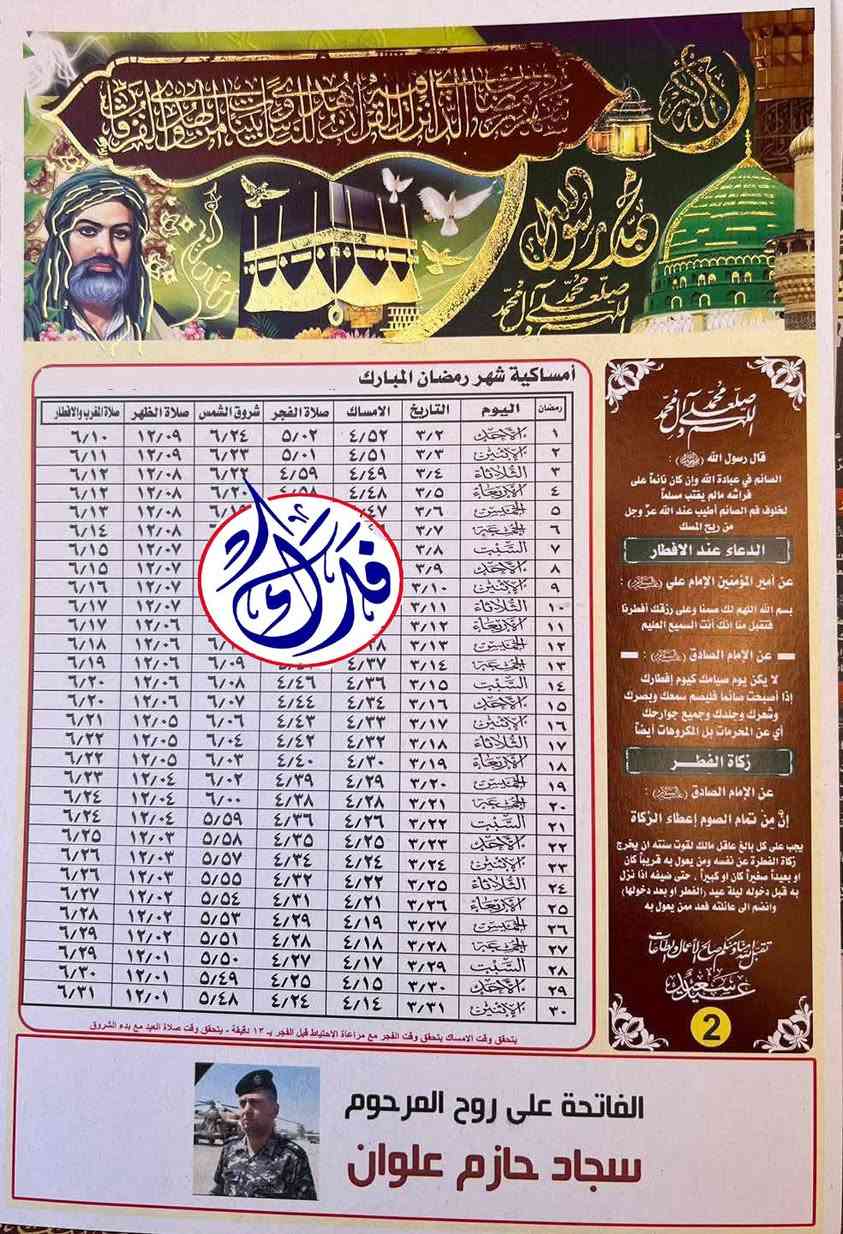 شهر رمضان الذي أنزل فيه القرآن هدى للناس وبينات من الهدى والفرقان
الله أكبر
محمد رسول الله
اللهم صل على محمد وآل محمد
أمساكية شهر رمضان المبارك
رمضان اليوم التاريخ الامساك صلاة الفجر شروق الشمس صلاة الظهر صلاة المغرب والافطار
١ الأحد ٣/٢ ٤/٥٢ ٥/٠٢ ٦/٢٤ ١٢/٠٩ ٦/١٠
٢ الاثنين ٣/٣ ٤/٥١ ٥/٠١ ٦/٢٣ ١٢/٠٩ ٦/١١
٣ الثلاثاء ٣/٤ ٤/٤٩ ٤/٥٩ ٦/٢٢ ١٢/٠٨ ٦/١٢
٤ الأربعاء ٣/٥ ٤/٤٨ ٤/٥٨ ٦/٢٠ ١٢/٠٨ ٦/١٢
٥ الخميس ٣/٦ ١٢/٠٨ ٦/١٣
٦ الجمعة ٣/٧ ١٢/٠٨ ٦/١٤
٧ السبت ٣/٨ ١٢/٠٧ ٦/١٥
٨ الأحد ٣/٩ ١٢/٠٧ ٦/١٥
٩ الاثنين ٣/١٠ ١٢/٠٧ ٦/١٦
١٠ الثلاثاء ٣/١١ ١٢/٠٧ ٦/١٧
١١ الأربعاء ٣/١٢ ١٢/٠٦ ٦/١٧
١٢ الخميس ٣/١٣ ١٢/٠٦ ٦/١٨
١٣ الجمعة ٣/١٤ ٤/٣٧ ٦/٠٩ ١٢/٠٦ ٦/١٩
١٤ السبت ٣/١٥ ٤/٣٦ ٤/٤٦ ٦/٠٨ ١٢/٠٦ ٦/٢٠
١٥ الأحد ٣/١٦ ٤/٣٤ ٤/٤٤ ٦/٠٧ ١٢/٠٦ ٦/٢٠
١٦ الاثنين ٣/١٧ ٤/٣٣ ٤/٤٣ ٦/٠٦ ١٢/٠٥ ٦/٢١
١٧ الثلاثاء ٣/١٨ ٤/٣٢ ٤/٤٢ ٦/٠٤ ١٢/٠٥ ٦/٢٢
١٨ الأربعاء ٣/١٩ ٤/٣٠ ٤/٤٠ ٦/٠٣ ١٢/٠٥ ٦/٢٢
١٩ الخميس ٣/٢٠ ٤/٢٩ ٤/٣٩ ٦/٠٢ ١٢/٠٤ ٦/٢٣
٢٠ الجمعة ٣/٢١ ٤/٢٨ ٤/٣٨ ٦/٠٠ ١٢/٠٤ ٦/٢٤
٢١ السبت ٣/٢٢ ٤/٢٦ ٤/٣٦ ٥/٥٩ ١٢/٠٤ ٦/٢٤
٢٢ الأحد ٣/٢٣ ٤/٢٥ ٤/٣٥ ٥/٥٨ ١٢/٠٣ ٦/٢٥
٢٣ الاثنين ٣/٢٤ ٤/٢٤ ٤/٣٤ ٥/٥٧ ١٢/٠٣ ٦/٢٦
٢٤ الثلاثاء ٣/٢٥ ٤/٢٢ ٤/٣٢ ٥/٥٥ ١٢/٠٣ ٦/٢٦
٢٥ الأربعاء ٣/٢٦ ٤/٢١ ٤/٣١ ٥/٥٤ ١٢/٠٢ ٦/٢٧
٢٦ الخميس ٣/٢٧ ٤/١٩ ٤/٢٩ ٥/٥٣ ١٢/٠٢ ٦/٢٨
٢٧ الجمعة ٣/٢٨ ٤/١٨ ٤/٢٨ ٥/٥١ ١٢/٠٢ ٦/٢٩
٢٨ السبت ٣/٢٩ ٤/١٧ ٤/٢٧ ٥/٥٠ ١٢/٠١ ٦/٢٩
٢٩ الأحد ٣/٣٠ ٤/١٥ ٤/٢٥ ٥/٤٩ ١٢/٠١ ٦/٣٠
٣٠ الاثنين ٣/٣١ ٤/١٤ ٤/٢٤ ٥/٤٨ ١٢/٠١ ٦/٣١
يتحقق وقت الامساك بتحقق وقت الفجر مع مراعاة الاحتياط قبل الفجر بـ ١٣ دقيقة - يتحقق وقت صلاة العيد مع بدء الشروق
فدك
اللهم صل على محمد وآل محمد
قال رسول الله (ﷺ):
الصائم في عبادة الله وإن كان نائماً على
فراشه مالم يغتب مسلماً
لخلوف فم الصائم أطيب عند الله عزّ وجل
من ريح المسك
الدعاء عند الافطار
عن أمير المؤمنين الإمام علي (عليه السلام):
بسم الله اللهم لك صمنا وعلى رزقك أفطرنا
فتقبل منا إنك أنت السميع العليم
عن الإمام الصادق (عليه السلام):
لا يكن يوم صيامك كيوم إفطارك
إذا أصبحت صائما فليصم سمعك وبصرك
وشعرك وجلدك وجميع جوارحك
أي عن المحرمات بل المكروهات أيضاً
زكاة الفطر
عن الإمام الصادق (عليه السلام):
إنّ مِن تمام الصوم إعطاء الزكاة
يجب على كل بالغ عاقل مالك لقوت سنته ان يخرج
زكاة الفطرة عن نفسه ومن يعول به قريباً كان
او بعيداً صغيراً كان او كبيراً، حتى ضيفه اذا نزل
به قبل دخوله ليلة عيد (الفطر او بعد دخولها)
وانضم الى عائلته فعد ممن يعول به
تقبل الله منا ومنكم صالح الأعمال والطاعات
عيد سعيد
2
الفاتحة على روح المرحوم
سجاد حازم علوان